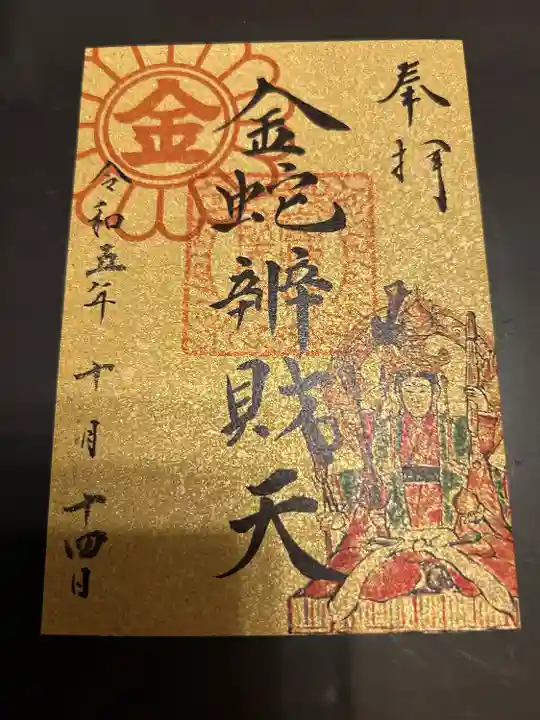 奉拝
金蛇辨財天
令和五年 十月 十四日
金